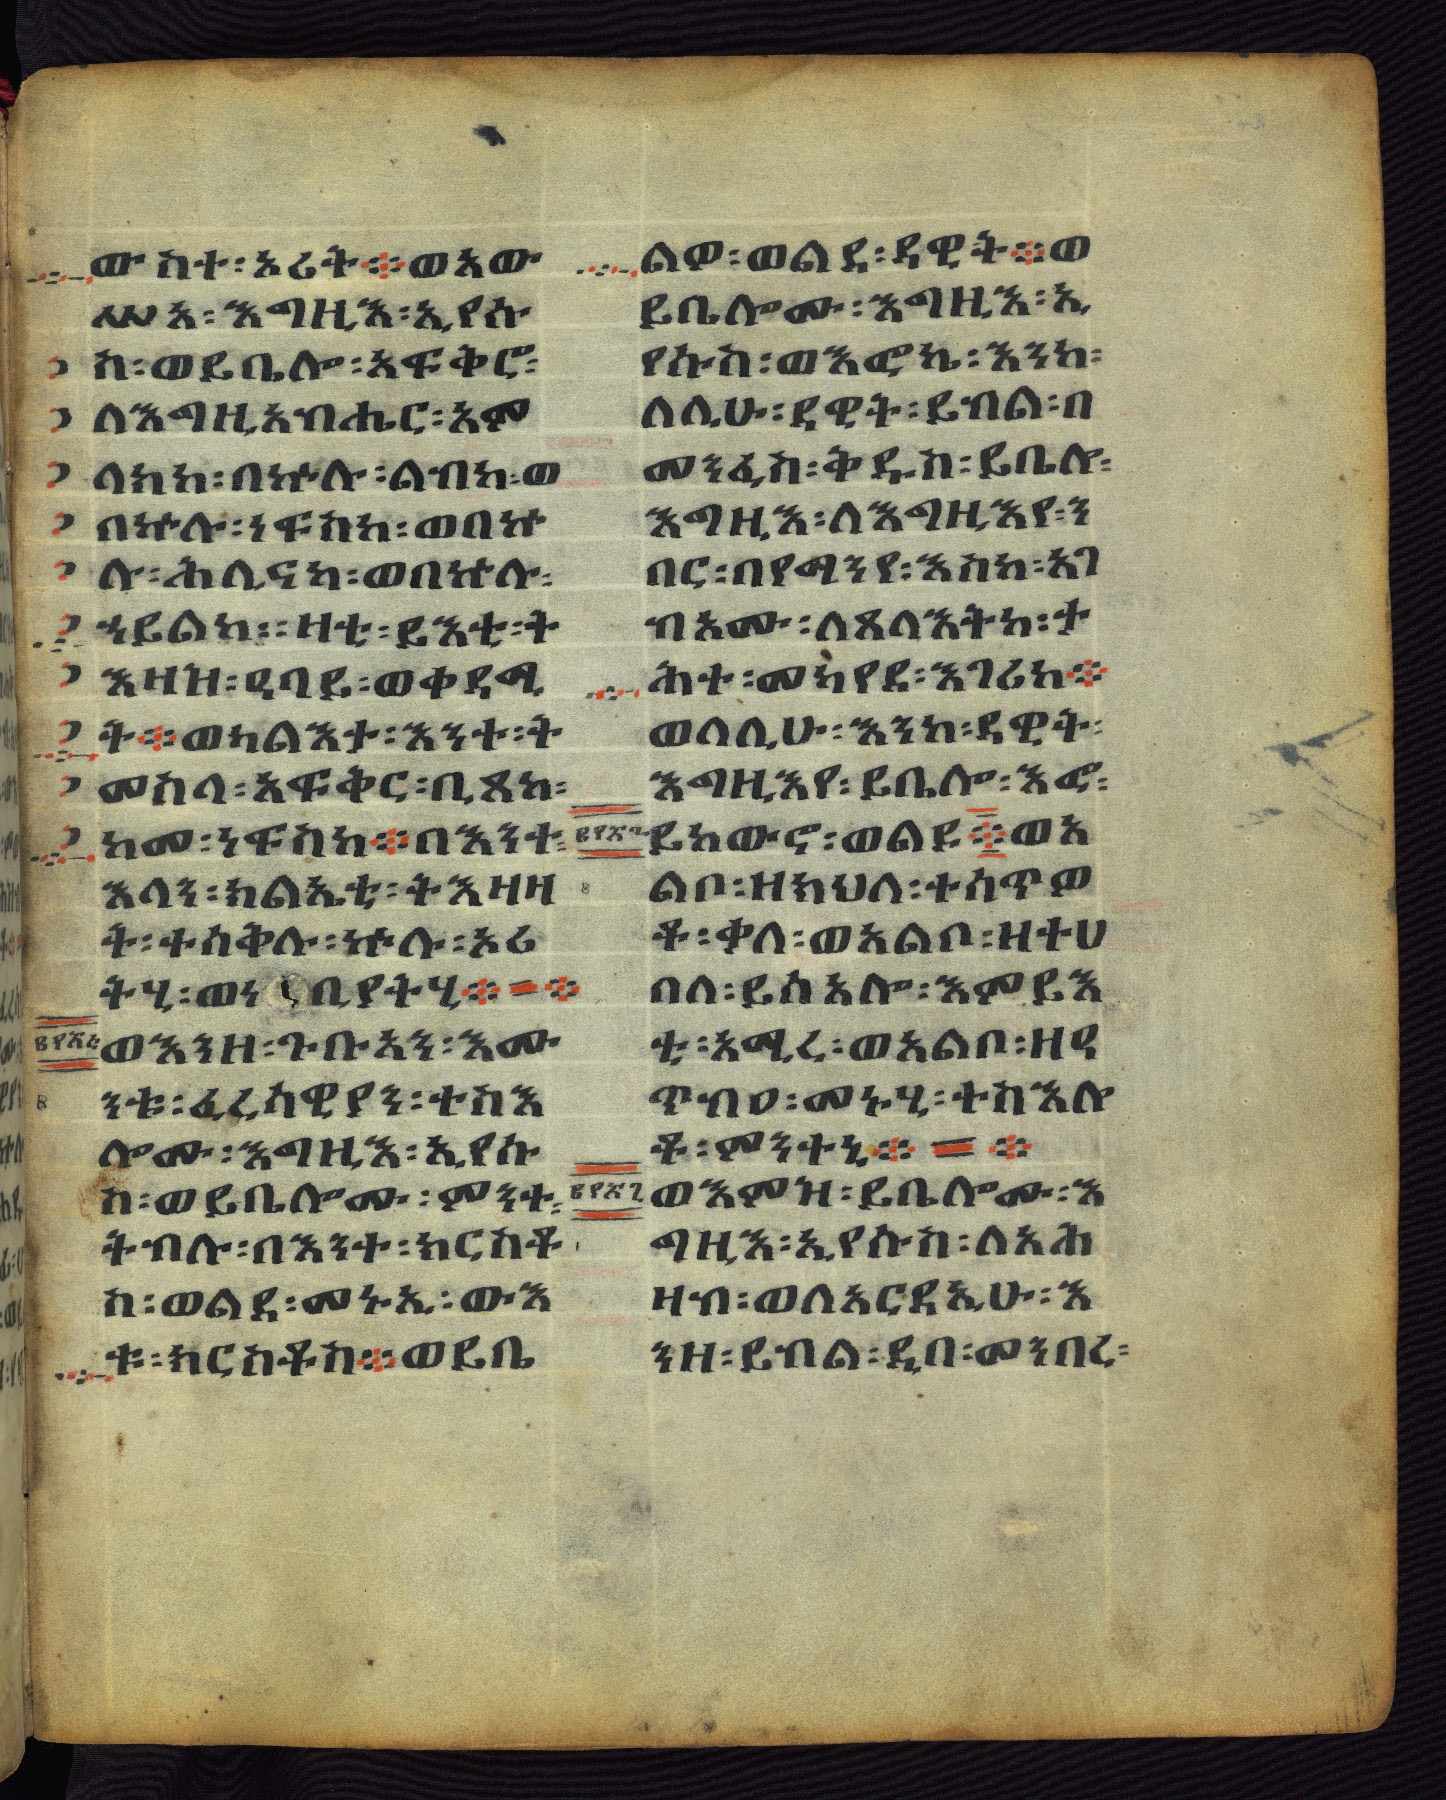 ውስተ፡ኦሪት፨ወአው
ሥአ፡እግዚእ፡ኢየሱ
ስ፡ወይቤሎ፡አፍቅሮ፡
ለእግዚአብሔር፡አም
ላክከ፡በኵሉ፡ልብከ፡ወ
በኵሉ፡ነፍስከ፡ወበኵ
ሉ፡ሕሊናከ፡ወበኵሉ፡
ኀይልከ፡፡ዛቲ፡ይእቲ፡ት
እዛዝ፡ዓባይ፡ወቀዳሚ
ት፨ወካልእታ፡እንተ፡ት
መስላ፡አፍቅር፡ቢጸከ፡
ከመ፡ነፍስከ፨በእንተ፡
እላን፡ክልኤቲ፡ትእዛዛ
ት፡ተሰቅሉ፡ኵሉ፡ኦሪ
ትሂ፡ወነቢያትሂ፨=፨
ወእንዘ፡ጉቡኣን፡እሙ
ንቱ፡ፈሪሳዊያን፡ተስእ
ሎሙ፡እግዚእ፡ኢየሱ
ስ፡ወይቤሎሙ፡ምንተ፡
ትብሉ፡በእንተ፡ክርስቶ
ስ፡ወልደ፡መኑኢ፡ውእ
ቱ፡ክርስቶስ፨ወይቤ
ልዎ፡ወልደ፡ዳዊት፨ወ
ይቤሎሙ፡እግዚእ፡ኢ
የሱስ፡ወእፎኬ፡እንከ፡
ለሊሁ፡ዳዊት፡ይብል፡በ
መንፈስ፡ቅዱስ፡ይቤሎ፡
እግዚእ፡ለእግዚእየ፡ን
በር፡በየማንየ፡እስከ፡አገ
ብኦሙ፡ለጸላእትከ፡ታ
ሕተ፡መከየደ፡እገሪከ፨
ወለሊሁ፡እንከ፡ዳዊት፡
እግዚእየ፡ይቤሎ፡እፎ፡
ይከውኖ፡ወልደ፨ወአ
ልቦ፡ዘክህለ፡ተሰጥዎ
ቶ፡ቃለ፡ወአልቦ፡ዘተሀ
በለ፡ይስአሎ፡እምይእ
ቲ፡አሚረ፡ወአልቦ፡ዘዳ
ጥብዐ፡መኑሂ፡ተስእሎ
ቶ፡ምንተኒ፨=፨
ወእምዝ፡ይቤሎሙ፡እ
ግዚእ፡ኢየሱስ፡ለአሕ
ዛብ፡ወለአርዳኢሁ፡እ
ንዘ፡ይብል፡ዲበ፡መንበረ፡